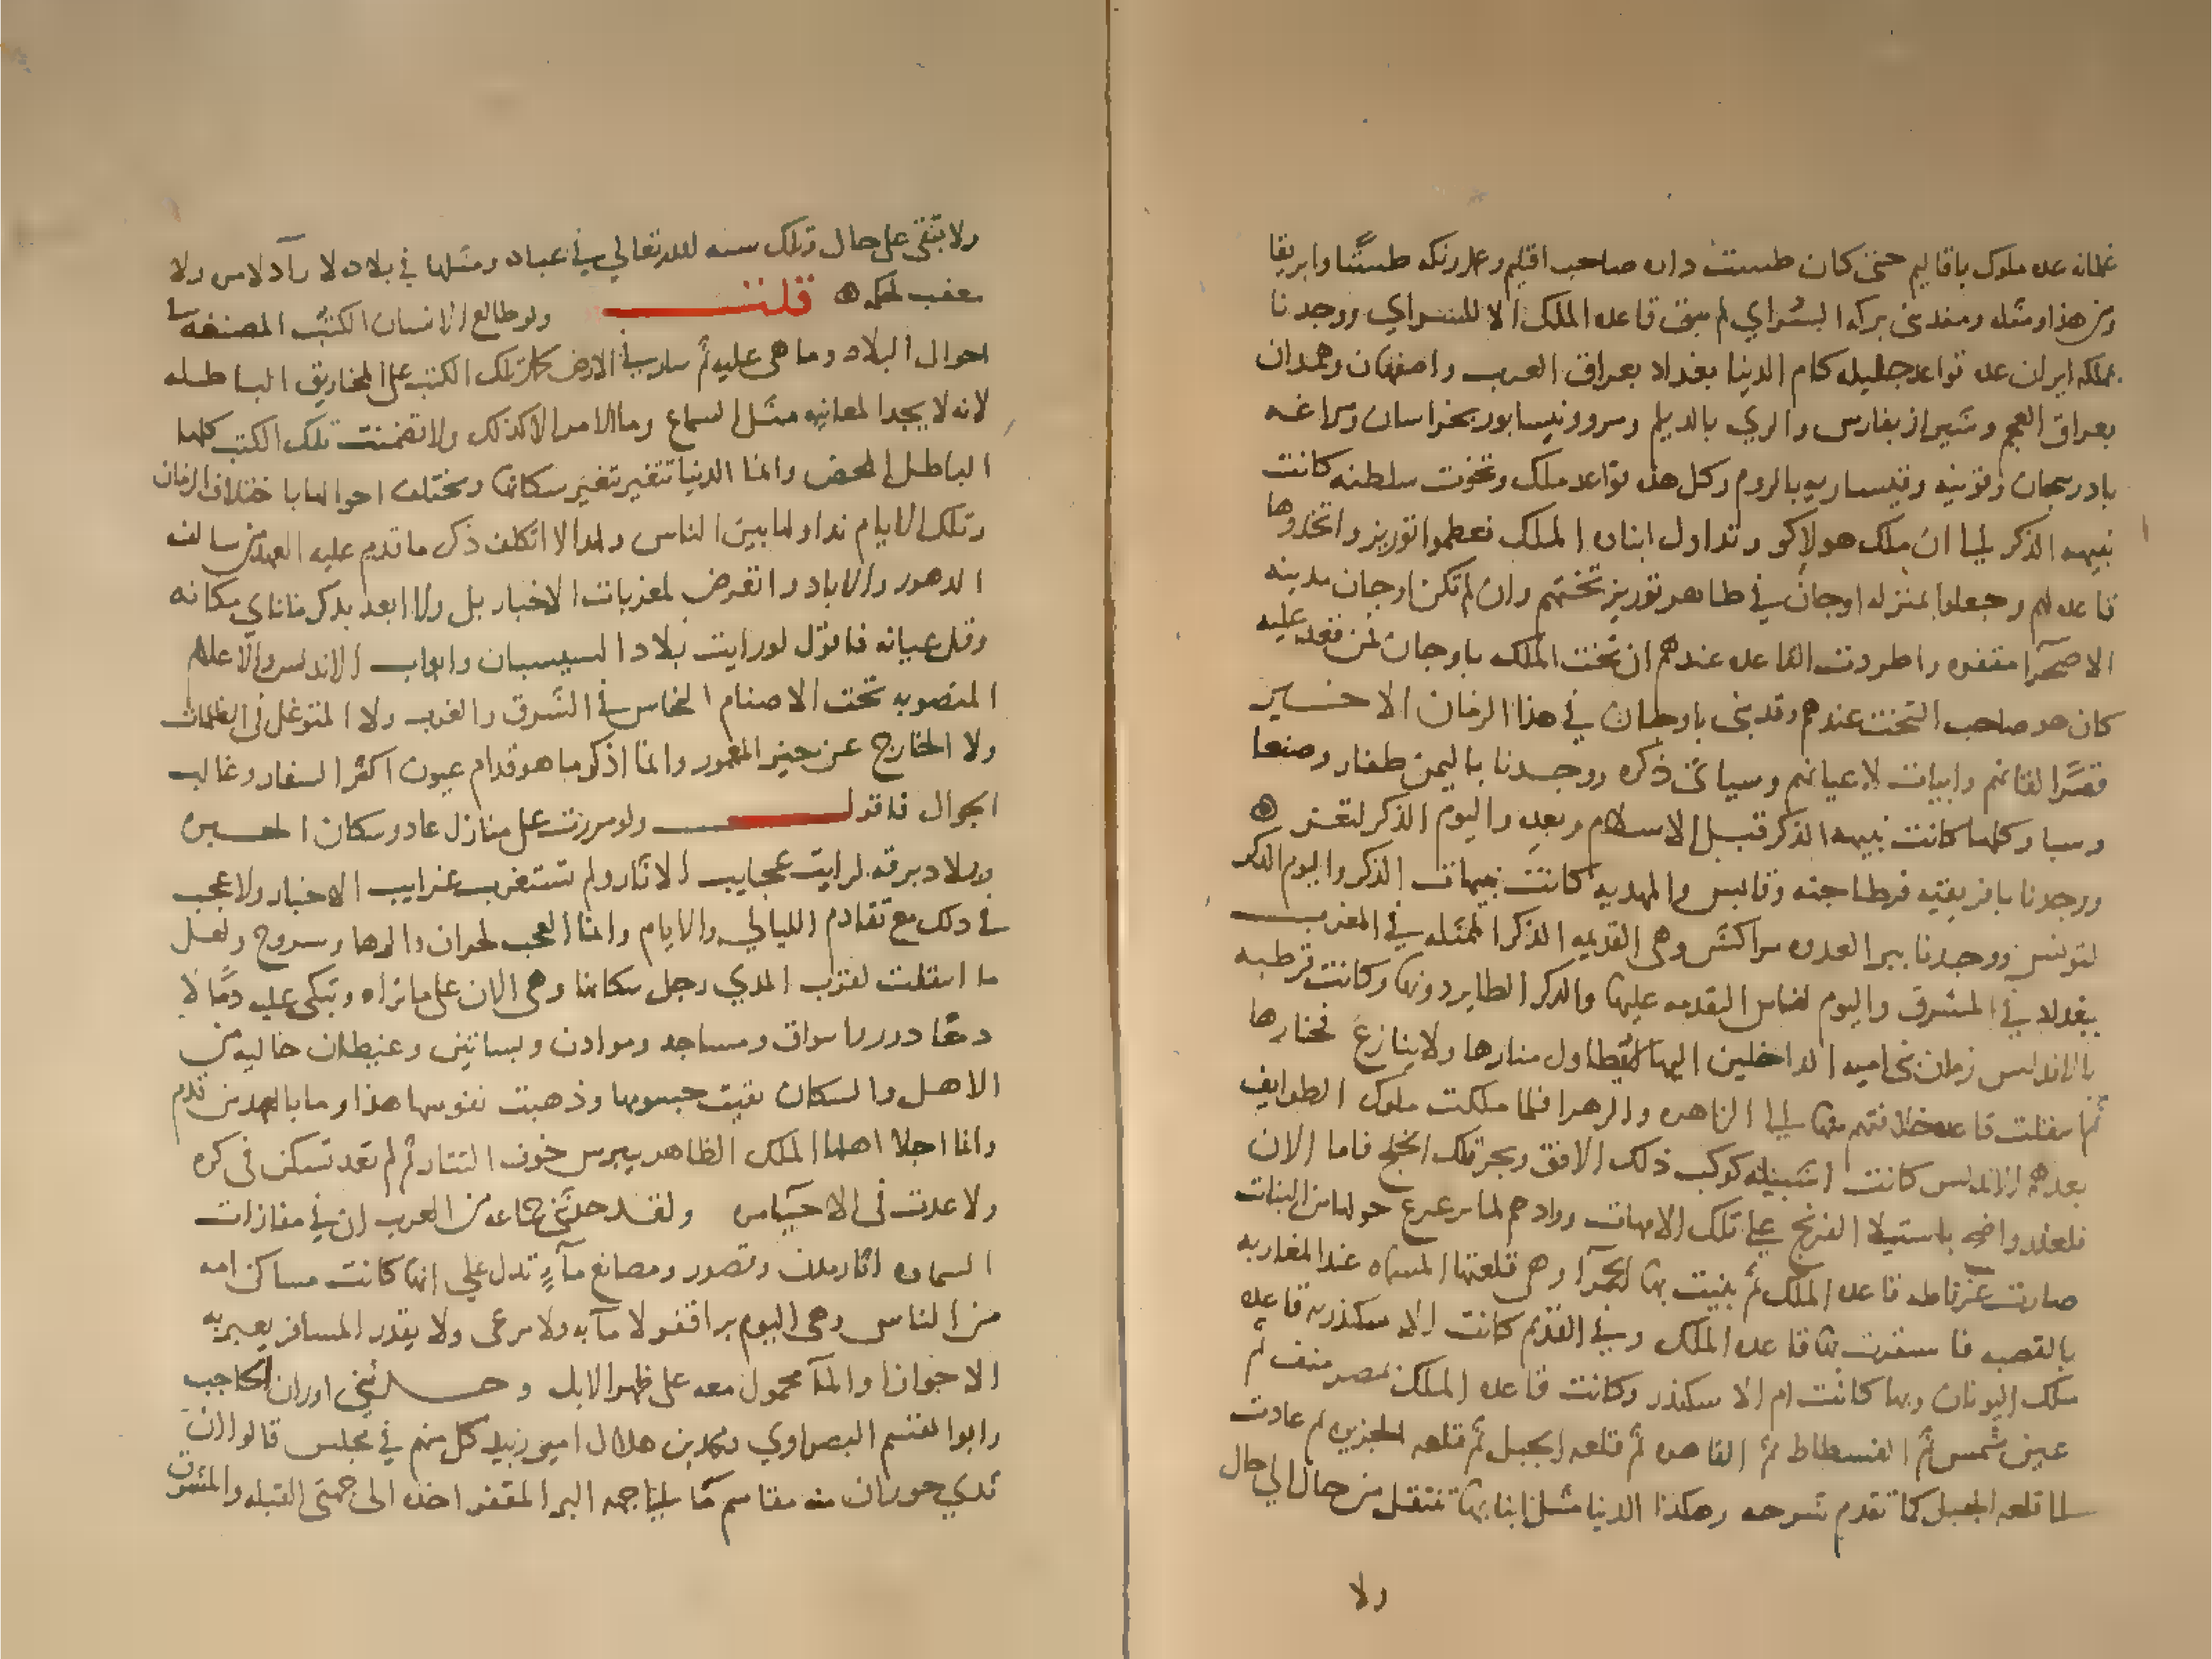 غلمانه عده ملوك باقاليم حتى كان طست داره صاحب اقليم وعلى رنكه طستا وابريقا
ومن هذا ومثله ومنذ بنى بركه السراي لم يبق قاعده الملك الا للسراي ووجدنا
بمملكه ايران عده قواعد جليله كام الدنيا بغداد بعراق العرب واصفهان وهمدان
بعراق العجم وشيراز بفارس والري بالديلم ومرو ونيسابور بخراسان ومراغه
باذربيجان وقونيه وقيساريه بالروم وكل هذه قواعد ملك وتخوت سلطنه كانت
نبيهه الذكر الى ان ملك هولاكو وتداول ابناه الملك فعظموا توريز واتخذوها
قاعده لهم وجعلوا لمنزله اوجان في ظاهر توريز تختهم وان لم تكن اوجان مدينه
الا صحرا مقفره واطردت القاعده عندهم ان تخت الملك باوجان فمن قعد عليه
كان هو صاحب التخت عندهم وقد بنى باوجان في هذا الزمان الاخير
قصرا لقانهم وابيات لاعيانهم وسياتي ذكره ووجدنا باليمن ظفار وصنعا
وسبا وكلها كانت نبيهه الذكر قبل الاسلام وبعده واليوم الذكر لتعز
ووجدنا بافريقيه قرطاجنه وقابس والمهديه كانت نبيهات الذكر واليوم الذكر
لتونس ووجدنا ببر العدوه مراكش وهي القديمه الذكر الممثله في المغرب
ببغداد في المشرق واليوم لفاس التقدمه عليها والذكر الطاير دونها وكانت قرطبه
بالاندلس زمان بني اميه الداخلين اليها لا يطاول منارها ولا ينازع فخارها
ثم انتقلت قاعده خلافتهم منها الى الزاهره والزهرا فلما ملكت ملوك الطوايف
بعدهم الاندلس كانت اشبيليه كوكب ذلك الافق وبحر تلك الخلج فاما الان
فلعذر واضح باستيلا الفرنج على تلك الامهات ووادهم لما ترعرع حولها من البنات
صارت غرناطه قاعده الملك ثم بنيت بها الحمرا وهي قلعتها المسماه عند المغاربه
بالقصبه فاستقرت بها قاعده الملك وفي القديم كانت الاسكندريه قاعده
ملك اليونان وبها كانت ام الاسكندر وكانت قاعده الملك بمصر منف ثم
عين شمس ثم الفسطاط ثم القاهره ثم قلعه الجبل ثم قلعه الجزيره ثم عادت
الى قلعه الجبل كما تقدم شرحه وهكذا الدنيا مثل ابنايها تنتقل من حال الى حال
ولا
ولا تبقى على حال وتلك سنه الله تعالى في عباده ومثلها في بلاده لا راد لامره ولا
معقب لحكمه قلت ولو طالع الانسان الكتب المصنفه في
احوال البلاد وما هي عليه ثم سار في الارض حمل تلك الكتب على المخاريق الباطله
لانه لا يجد المعاينه مثل السماع وما الامر الا كذلك ولا تضمنت تلك الكتب كلها
الباطل المحض وانما الدنيا تتغير بتغير سكانها وتختلف احوالها باختلاف الزمان
وتلك الايام نداولها بين الناس ولهذا لا اتكلف ذكر ما تقدم عليه العهد من سالف
الدهور والاباد واتعرض لمغربات الاخبار بل ولا ابعد بذكر ما ناي مكانه
وقل عيانه فاقول لو رايت بلاد السيسبان وابواب الاندلس والاعلام
المنصوبه تحت الاصنام النحاس في الشرق والغرب ولا المتوغل في الظلمات
ولا الخارج عن حيز المعمور وانما اذكر ما هو قدام عيون اكثر السفار وغالب
الجوال فاقول ولو مررت على منازل عاد وسكان الحسين
وبلاد برقه لرايت عجايب الاثار ولم تستغرب غرايب الاخبار ولا عجب
في ذلك مع تقادم الليالي والايام وانما العجب لحران والرها وسروج ولعل
ما انتقلت لقرب المدي رجل سكانها وهي الان على ما تراه وتبكي عليه دما لا
دمعا دور واسواق ومساجد وموادن وبساتين وغيطان خاليه من
الاهل والسكان بقيت جسومها وذهبت نفوسها هذا وما بالعهد من قدم
وانما اجلا اهلها الملك الظاهر بيبرس خوف التتار ثم لم تعد تسكن في كره
ولا عدت في الاحيا من ولقد حدثني جماعه من العرب ان في مفازات
السماوه اثار مدن وقصور ومصانع ماء تدل على انها كانت مساكن امه
من الناس وهي اليوم براقفر لا ما به ولا مرعى ولا يقدر المسافر يعبر به
الا جوازا والما محمول معه على ظهر الابل وحدثني اوران الحاجب
وابو القسم البصراوي ومحمد بن هلال امير زبيد كل منهم في مجلس قالوا ان
ثدي حوران منه مقاسم مما يلي جهه البر المقفر اخذه الى جهتي القبله والمشرق